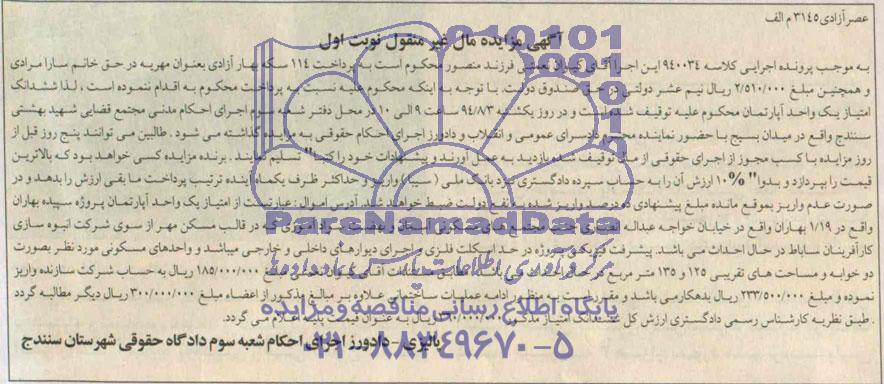 عصر آزادی ۳۱۴۵ م الف
آگهی مزایده مال غیر منقول نوبت اول
به موجب پرونده اجرایی کلاسه ۹۴۰۰۳۴ این اجرا آقای کیوان نعیمی فرزند منصور محکوم است به پرداخت ۱۱۴ سکه بهار آزادی بعنوان مهریه در حق خانم سارا مرادی
و همچنین مبلغ ۲/۵۱۰/۰۰۰ ریال نیم عشر دولتی در حق صندوق دولت. با توجه به اینکه محکوم علیه نسبت به پرداخت محکوم به اقدام ننموده است، لذا ششدانگ
امتیاز یک واحد آپارتمان محکوم علیه توقیف شده است و در روز یکشنبه ۹۴/۸/۳ ساعت ۹ الی ۱۰ در محل دفتر شعبه سوم اجرای احکام مدنی مجتمع قضایی شهید بهشتی
سنندج واقع در میدان بسیج با حضور نماینده محترم دادسرای عمومی و انقلاب و دادورز اجرای احکام حقوقی به مزایده گذاشته می شود. طالبین می توانند پنج روز قبل از
روز مزایده با کسب مجوز از اجرای حقوقی از مال توقیف شده بازدید به عمل آورند و پیشنهادات خود را کتبا" تسلیم نمایند. برنده مزایده کسی خواهد بود که بالاترین
قیمت را بپردازد و بدوا" ۱۰% ارزش آن را به حساب سپرده دادگستری نزد بانک ملی (سیبا) واریز و حداکثر ظرف یکماه آینده ترتیب پرداخت مابقی ارزش را بدهد و در
صورت عدم واریز بموقع مانده مبلغ پیشنهادی ده درصد واریز شده به نفع دولت ضبط خواهد شد. آدرس اموال: عبارتست از امتیاز یک واحد آپارتمان پروژه سپیده بهاران
واقع در ۱/۱۹ بهاران واقع در خیابان خواجه عبداله انصاری جنب مجتمع های مسکونی که در قالب مسکن مهر از سوی شرکت انبوه سازی
کارآفرینان ساباط در حال احداث می باشد. پیشرفت فیزیکی پروژه در حد اسکلت فلزی و اجرای دیوارهای داخلی و خارجی میباشد و واحدهای مسکونی مورد نظر بصورت
دو خوابه و مساحت های تقریبی ۱۲۵ و ۱۳۵ متر مربع در حال آقای مبلغ ۱۸۵/۰۰۰/۰۰۰ ریال به حساب شرکت سازنده واریز
نموده و مبلغ ۲۳۳/۵۰۰/۰۰۰ ریال بدهکار می باشد و مقرر است به منظور ادامه عملیات ساختمانی علاوه بر مبالغ مذکور از اعضاء مبلغ ۳۰۰/۰۰۰/۰۰۰ ریال دیگر مطالبه گردد
. طبق نظریه کارشناس رسمی دادگستری ارزش کل ششدانگ امتیاز مذکور ریال به عنوان قیمت پایه اعلام می گردد.
پالیزی - دادورز اجرای احکام شعبه سوم دادگاه حقوقی شهرستان سنندج
ParsNamadData
پایگاه اطلاع رسانی مناقصه و مزایده
۰۲۱-۸۸۳۴۹۶۷۰-۵